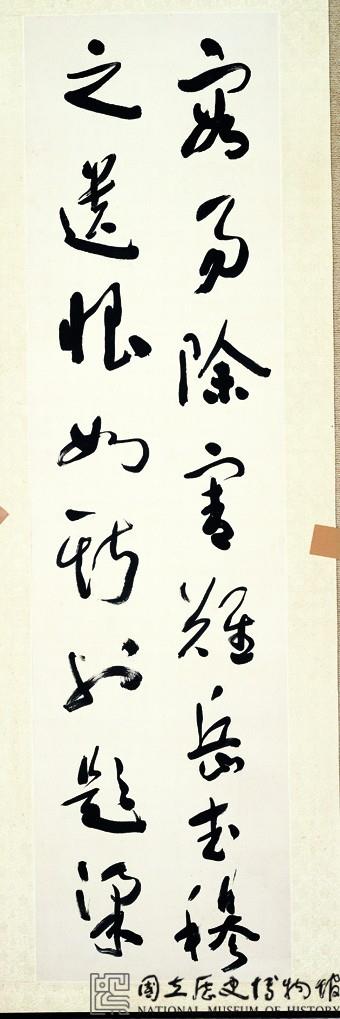 易除害難岳武穆
之遺恨如斯題梁
國立歷史博物館
NATIONAL MUSEUM OF HISTORY